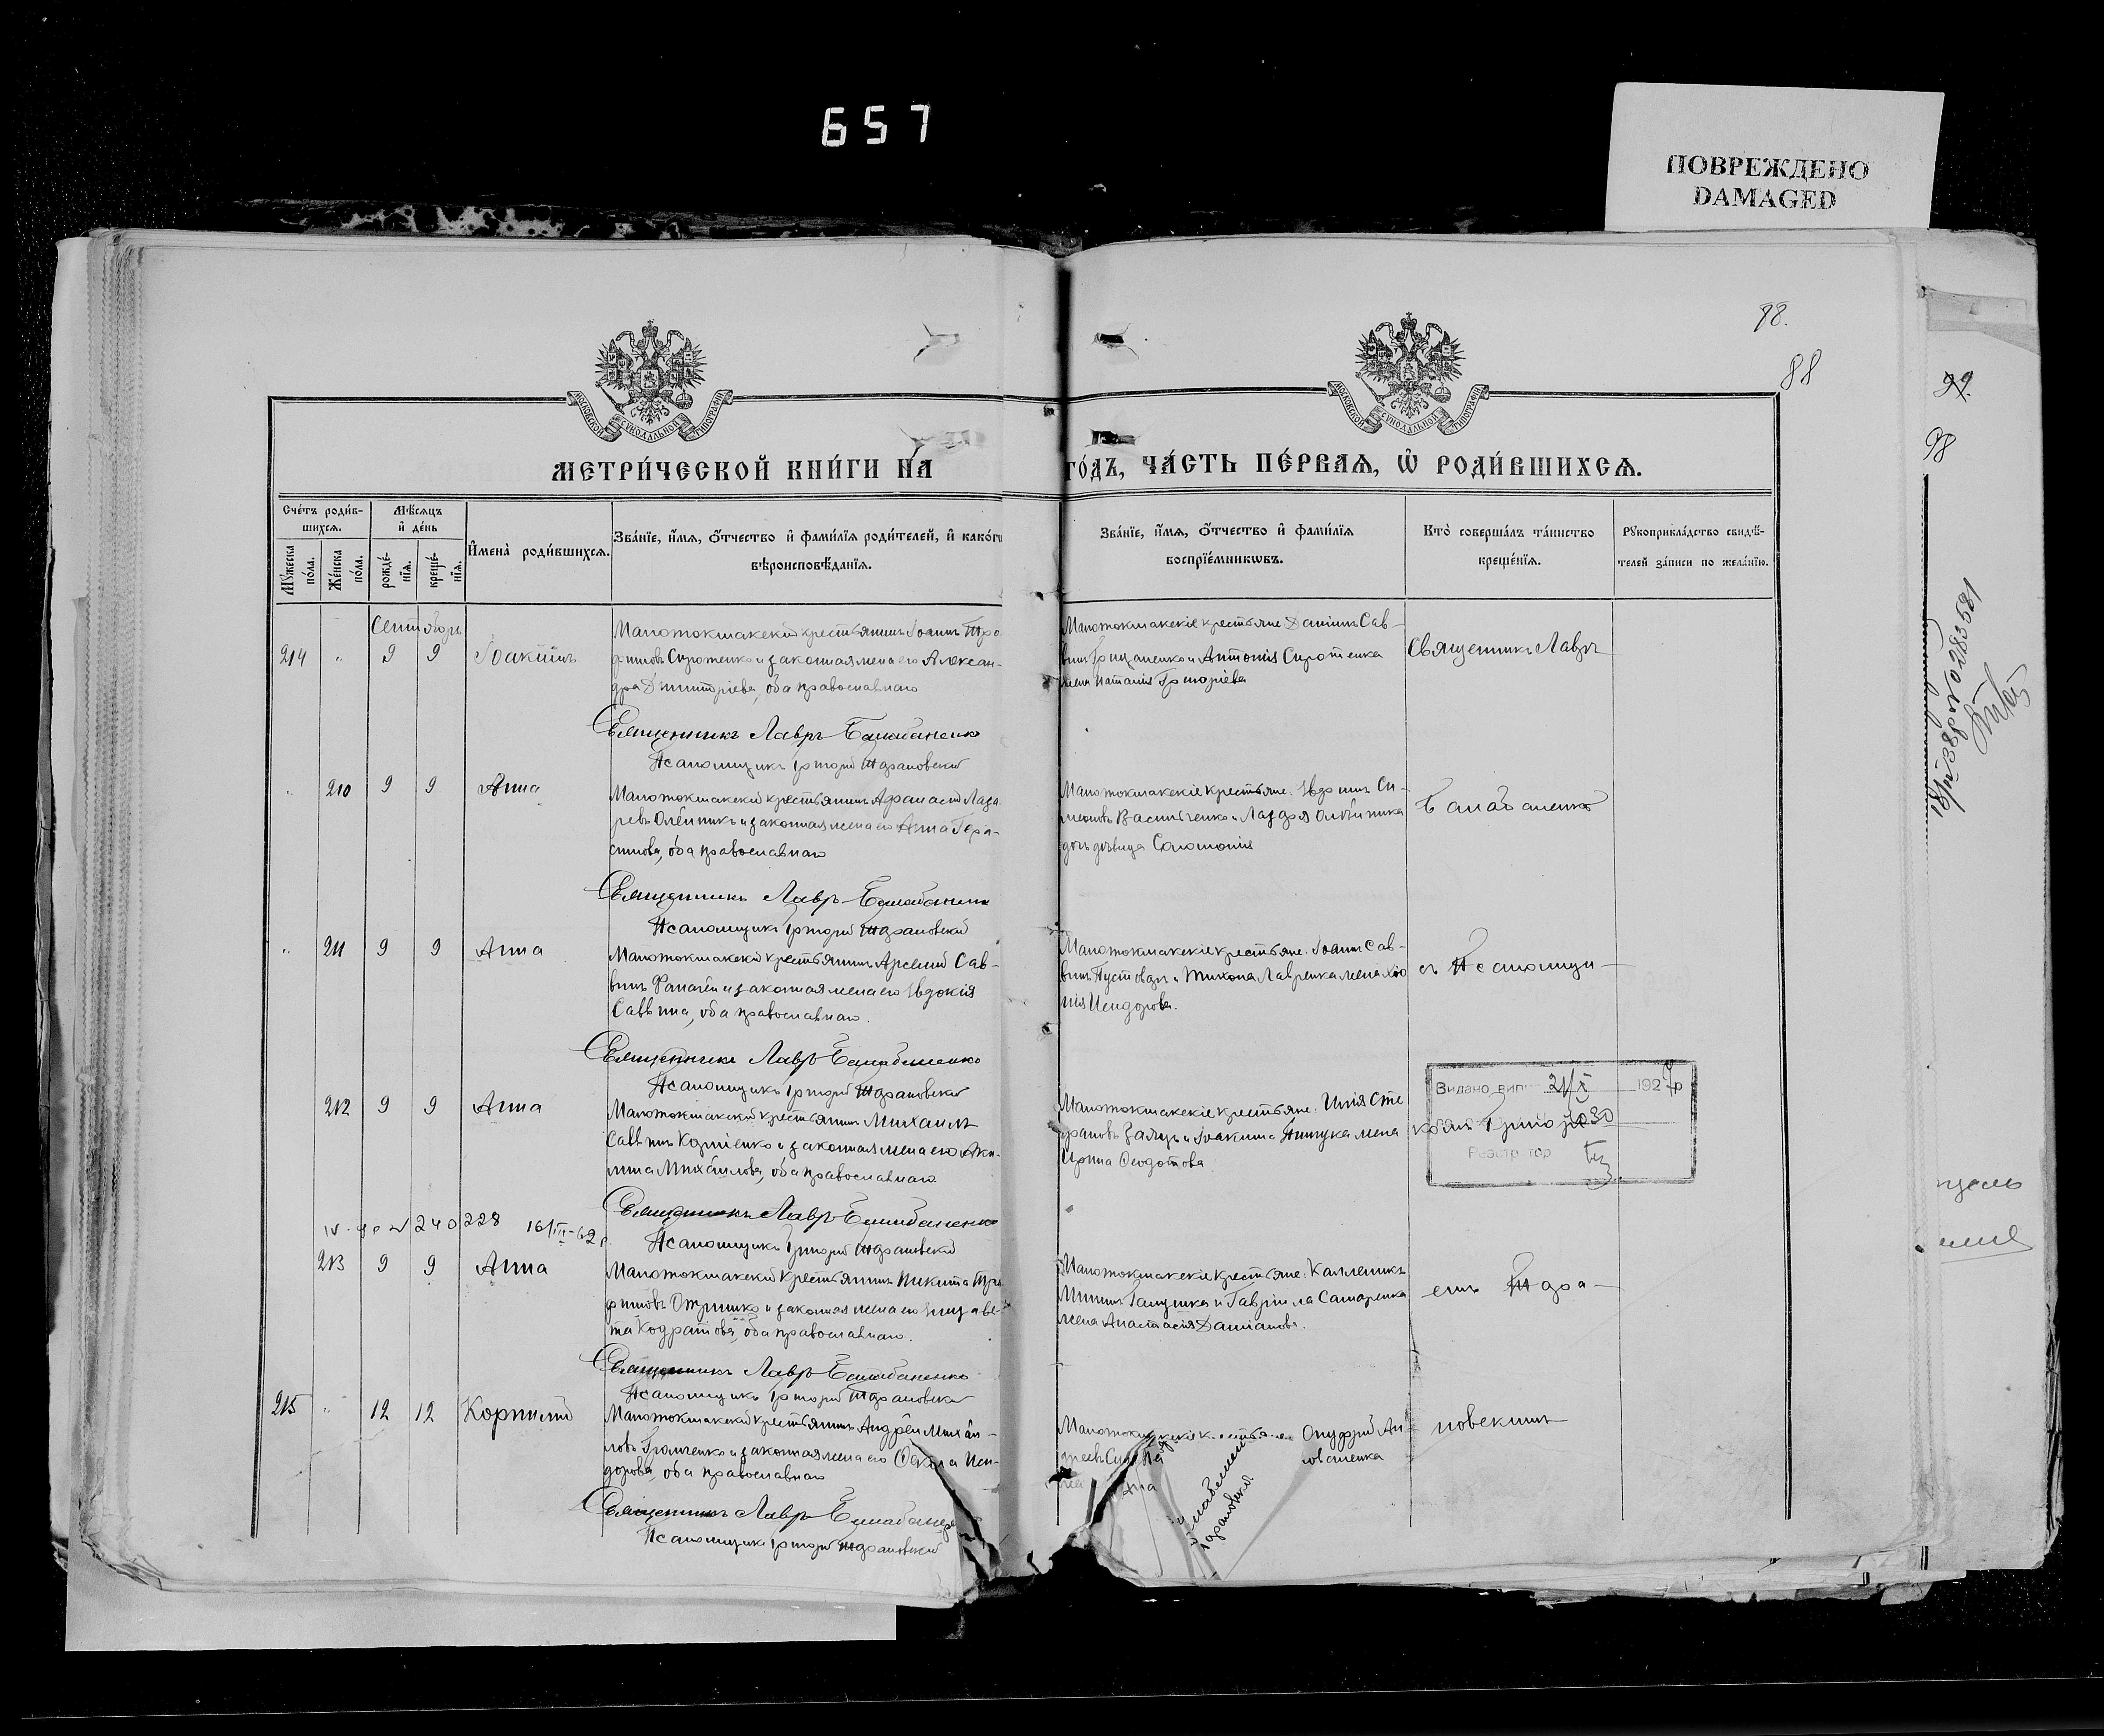 657
ПОВРЕЖДЕНО
DAMAGED
98.
88
99.
98
МОСКОВСКОЙ СѴНОДАЛЬНОЙ ТИПОГРАФІИ
МОСКОВСКОЙ СѴНОДАЛЬНОЙ ТИПОГРАФІИ
МЕТРИ́ЧЕСКОЙ КНИ́ГИ НА
ГО́ДЪ, ЧА́СТЬ ПЕ́РВАѦ, Ѡ РОДИ́ВШИХСѦ.
Сче́тъ роди́в-
шихсѧ.
Мѣ́сѧцъ
и де́нь
Мꙋ́жеска по́ла.
Же́нска по́ла.
рожде́-
нїѧ.
креще́-
нїѧ.
И҆мена̀ роди́вшихсѧ.
Зва́нїе, и҆́мѧ, о҆́тчество и҆ фами́лїѧ роди́телей, и҆ како́гѡ
вѣроисповѣ́данїѧ.
Зва́нїе, и҆́мѧ, о҆́тчество и҆ фами́лїѧ
воспрїе́мникѡвъ.
Кто̀ соверша́лъ та́инство
креще́нїѧ.
Рꙋкоприкла́дство свидѣ́-
телей за́писи по жела́нїю.
Сентябрь
214 " 9 9 Іоакимъ
Малотокмакскій крестьянинъ Іоаннъ Тро-
фимовъ Сиротенко и законная жена его Алексан-
дра Димитріева, оба православнаго
Священникъ Лавръ Балабаненко
Псаломщикъ Григорій Тарановскій
Малотокмакскіе крестьяне Даніилъ Сав-
винъ Гриценко и Антонія Сиротенка
жена Наталія Григоріева
Священникъ Лавръ
" 210 9 9 Анна
Малотокмакскій крестьянинъ Афанасій Лаза-
ревъ Олейникъ и законная жена его Анна Гера-
симова, оба православнаго
Священникъ Лавръ Балабаненко
Псаломщикъ Григорій Тарановскій
Малотокмакскіе крестьяне: Евдокимъ Си-
меоновъ Васильченко и Лазаря Олейника
дочь девица Соломонія
Балабаненко
" 211 9 9 Анна
Малотокмакскій крестьянинъ Арсеній Сав-
винъ Фалагей и законная жена его Евдокія
Саввина, оба православнаго.
Священникъ Лавръ Балабаненко
Псаломщикъ Григорій Тарановскій
Малотокмакскіе крестьяне: Іоаннъ Сав-
винъ Пустоваръ и Тихона Лавренка жена
Исидорова.
съ Псаломщи-
212 9 9 Анна
Малотокмакскій крестьянинъ Михаилъ
Саввинъ Козиенко и законная жена его Аки-
лина Михайлова, оба православнаго
Священникъ Лавръ Балабаненко
Псаломщикъ Григорій Тарановскій
Малотокмакскіе крестьяне: Илія Сте-
фановъ Заяцъ и Іоакима жена
Ирина Феодотова
комъ Григорі
Видано вип 21/X 192 р
1030
Реєстратор
240228 16/III-62 г.
213 9 9 Анна
Малотокмакскій крестьянинъ Никита Тро-
фимовъ и законная жена его Елизаве-
та Кодратова, оба православнаго.
Священникъ Лавръ Балабаненко
Псаломщикъ Григорій Тарановскій
Малотокмакскіе крестьяне: Каллиникъ
Мининъ Галушка и Гавріила Самаренка
жена Анастасія Даміанова.
емъ Тара-
215 " 12 12 Корнилій
Малотокмакскій крестьянинъ Андрей Михай-
ловъ и законная жена его Фекла Иси-
дорова, оба православнаго
Священникъ Лавръ Балабаненко
Псаломщикъ Григорій Тарановскій
Малотокмакскіе крестьяне Онуфрій Ан-
дреевъ
новскимъ